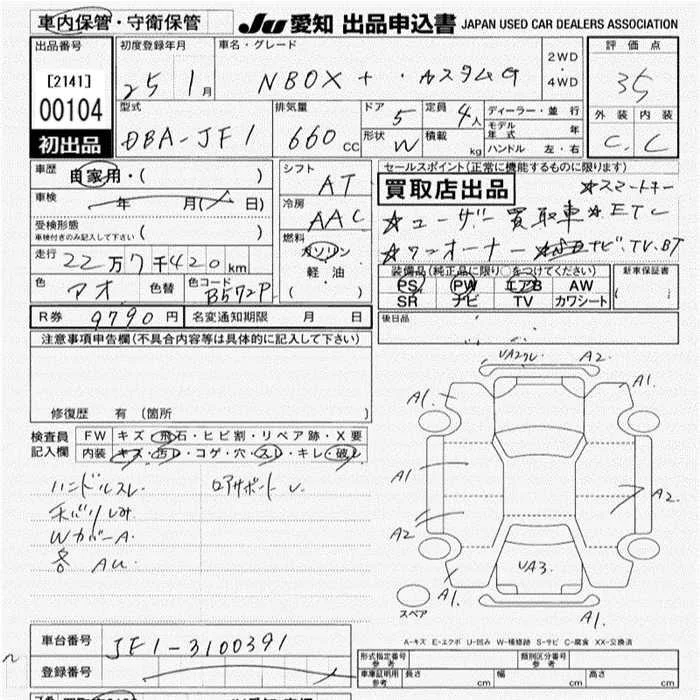 車内保管・守衛保管
JU 愛知 出品申込書 JAPAN USED CAR DEALERS ASSOCIATION
出品番号
[2141]
00104
初出品
初度登録年月
25 1月
車名・グレード
NBOX + ・カスタムG
2WD
・
4WD
評価点
35
外装 内装
C. C
型式
DBA-JF1
排気量
660 CC
ドア 5
定員 4人
形状 W
積載 kg
ディーラー・並行
モデル年式 年
ハンドル 左・右
車歴
自家用・( )
車検
年 月( 日)
受検形態
車検付きのみ記入して下さい ( )
走行 22万7千420km
色 アオ 色替 色コード B572P
シフト
AT
冷房
AAC
燃料
ガソリン
軽油
( )
セールスポイント(正常に機能するものに限ります)
買取店出品 ☆スマートキー
☆ユーザー買取車 ☆ETC
☆ワンオーナー ナビ、TV、BT
装備品(純正品に限り○をつけてください)
PS PW エアB AW
SR ナビ TV カワシート
新車保証書
( )
R券 9790円 名変通知期限 月 日
後日品
注意事項申告欄(不具合内容等は具体的に記入して下さい)
修復歴 有 (箇所 )
検査員記入欄
FW キズ・飛石・ヒビ割・リペア跡・X要
内装 キズ・汚レ・コゲ・穴・スレ・キレ・破レ
ハンドルスレ
Wカバー A
各 AU
A2.
A1. A1.
A1 A2
A2
UA3.
A1. A1.
A1.
スペア
A-キズ E-エクボ U-凹み W-補修跡 S-サビ C-腐食 XX-交換済
車台番号 JF1-3100391
登録番号
形式指定番号 参考
類別区分番号 参考
車庫証明用 参考
長さ cm 幅 cm 高さ cm